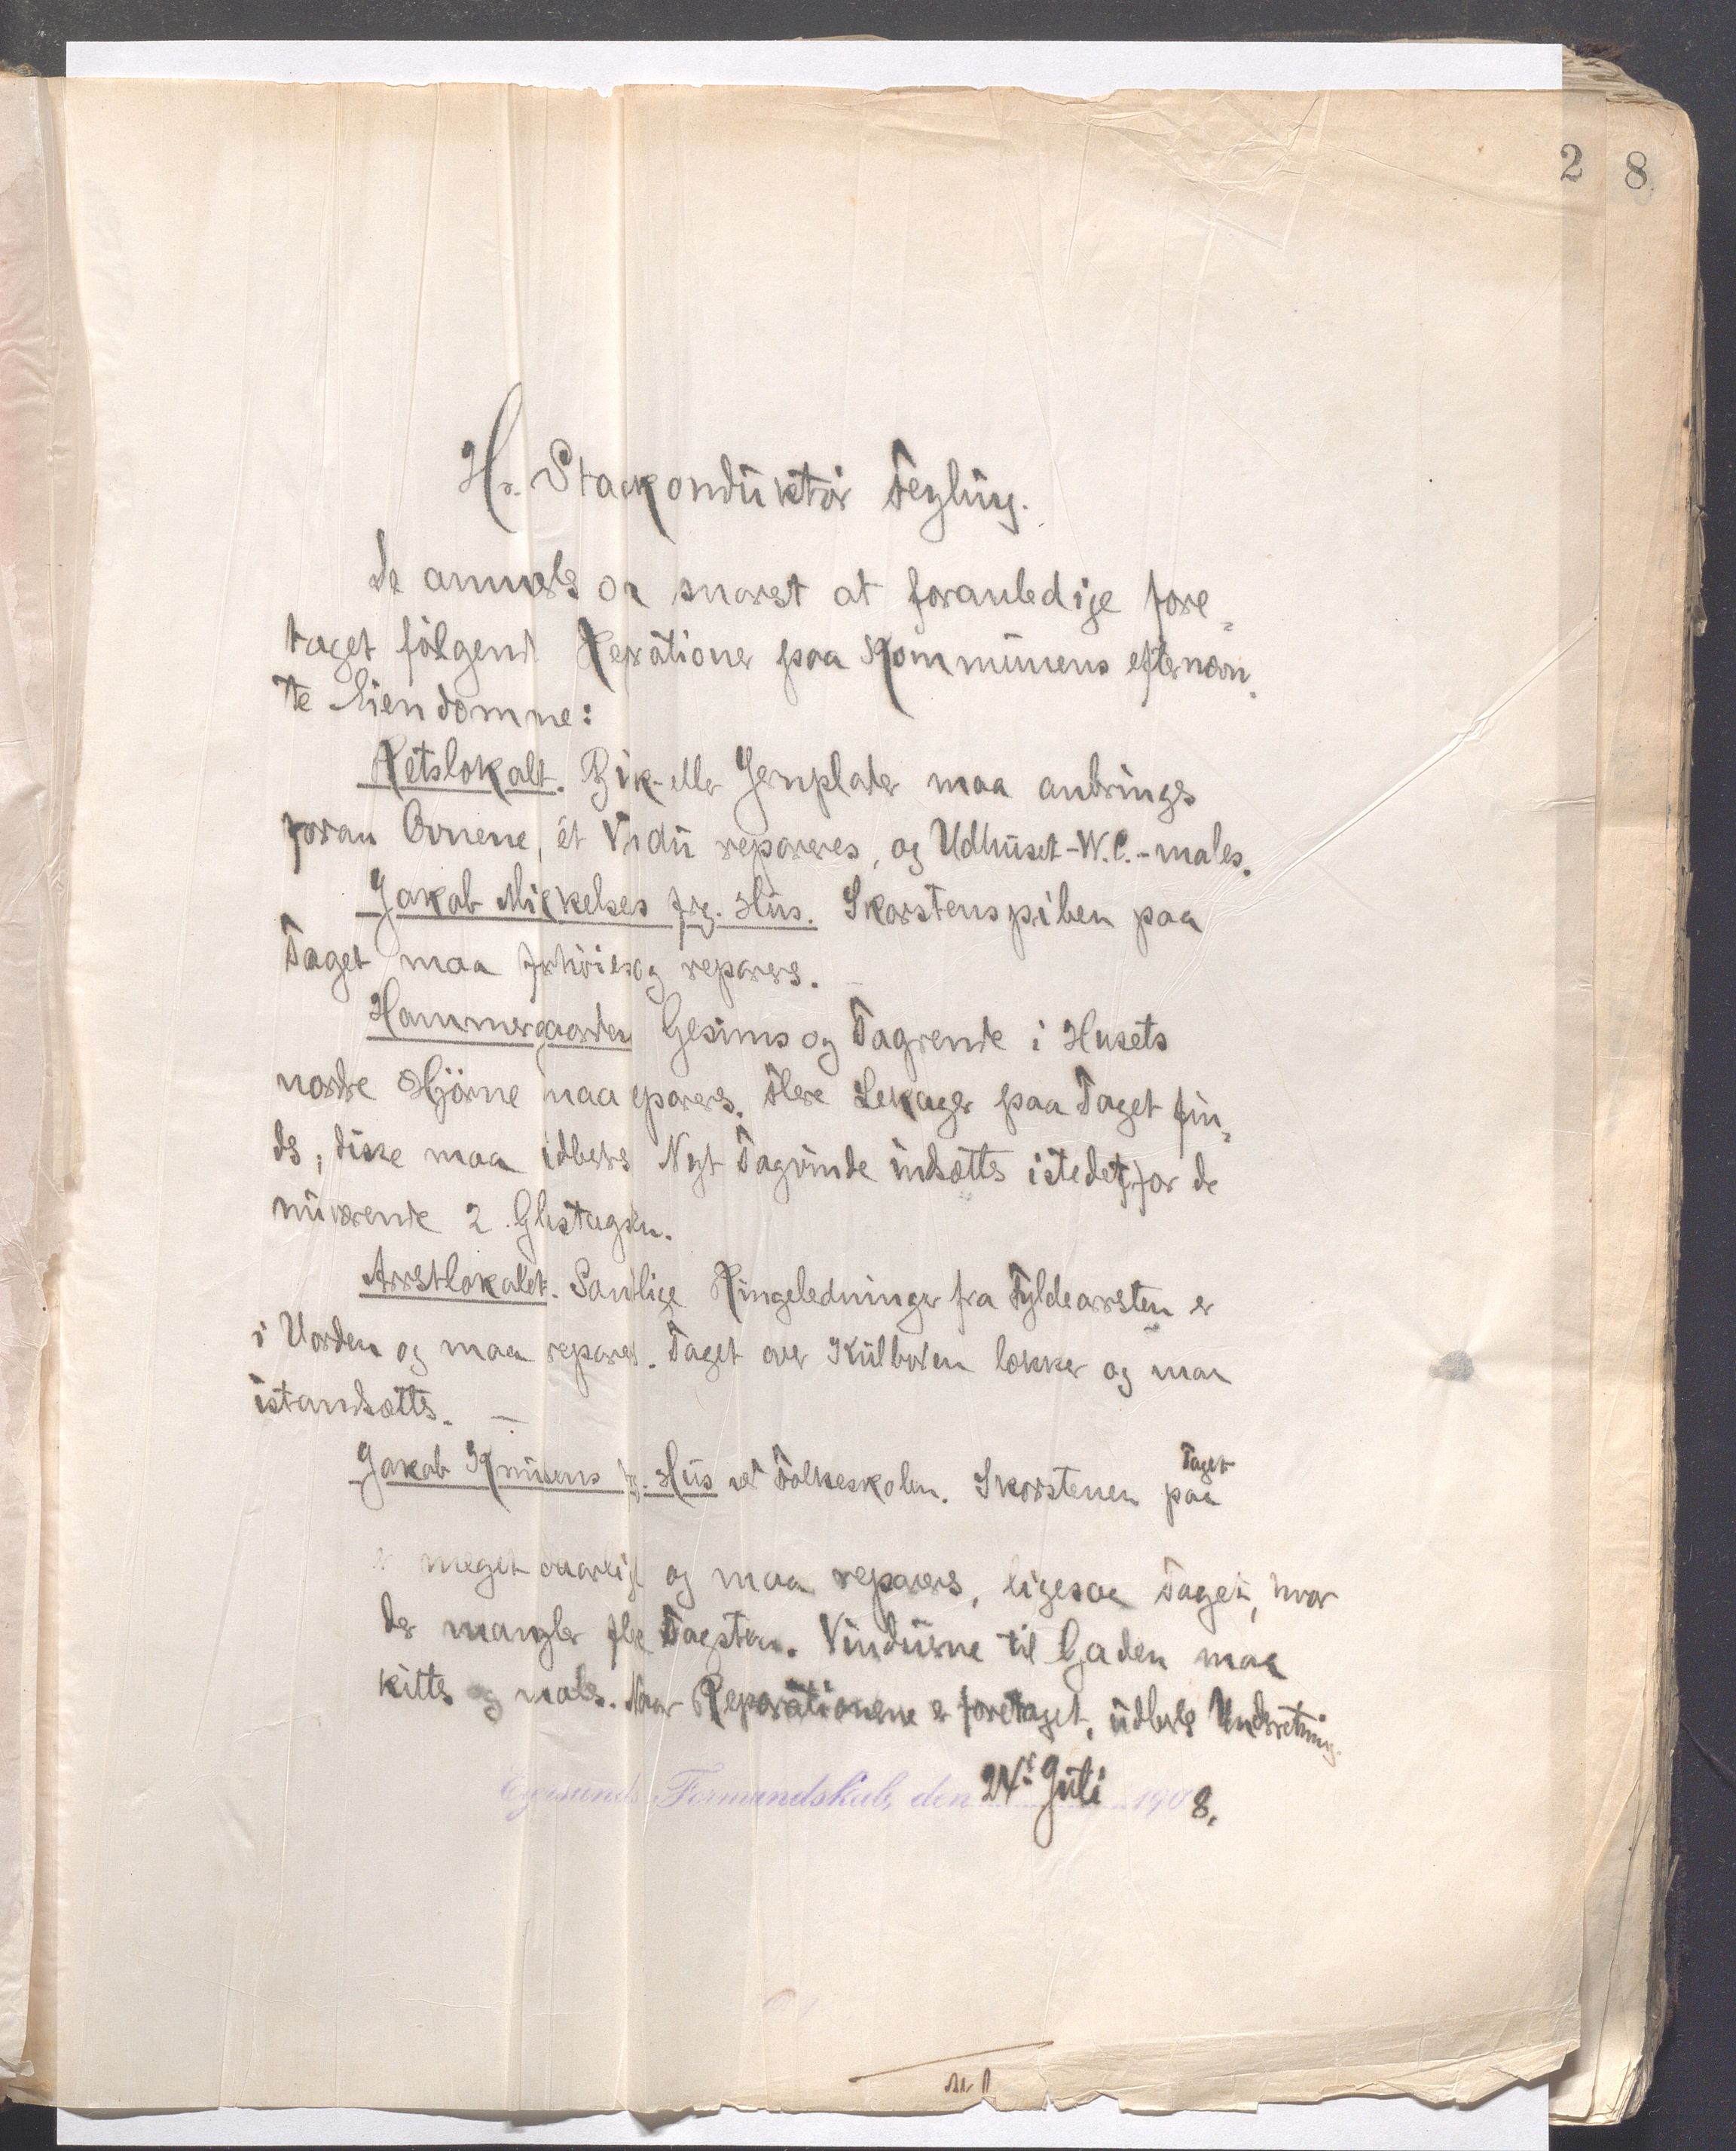 2 8
Hr. Stadkonduktør Feyling.
De anmodes om snarest at foranledige fore-
taget følgende Reparationer paa Kommunens efternævn-
te Eiendomme:
Retslokalet. Zink- eller Jernplader maa anbringes
foran Ovnene, ét Vindu repareres, og Udhuset-W.C.-males.
Jakob Mickelsens frg. Hus. Skorstenspiben paa
Taget maa forhøies og repareres.
Hammergaarden Gesims og Tagrende i Husets
nordre Hjørne maa repareres. Flere Lekager paa Taget fin-
des; disse maa udbedres Nyt Tagvindu indsættes istedetfor de
nuværende 2 Glastagsten.
Arrestlokalet. Samtlige Ringeledninger fra Fyldearresten er
i Uorden og maa repareres. Taget over Kulboden lækker og maa
istandsættes. —
Jakob Knudsens frg. Hus ved Folkeskolen. Skorstenen paa Taget
er meget daarligt og maa repareres, ligesaa Taget, hvor
der mangler flere Tagsten. Vinduerne til Gaden maa
kittes og males. Naar Reparationerne er foretaget, udbedes Underretning.
Egersunds Formandskab, den 24de Juli 1908.